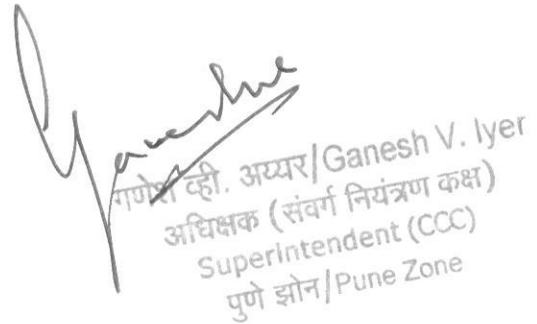 Ganeshne
गणेश व्ही. अय्यर/Ganesh V. Iyer
अधिक्षक (संवर्ग नियंत्रण कक्ष)
Superintendent (CCC)
पुणे झोन/Pune Zone